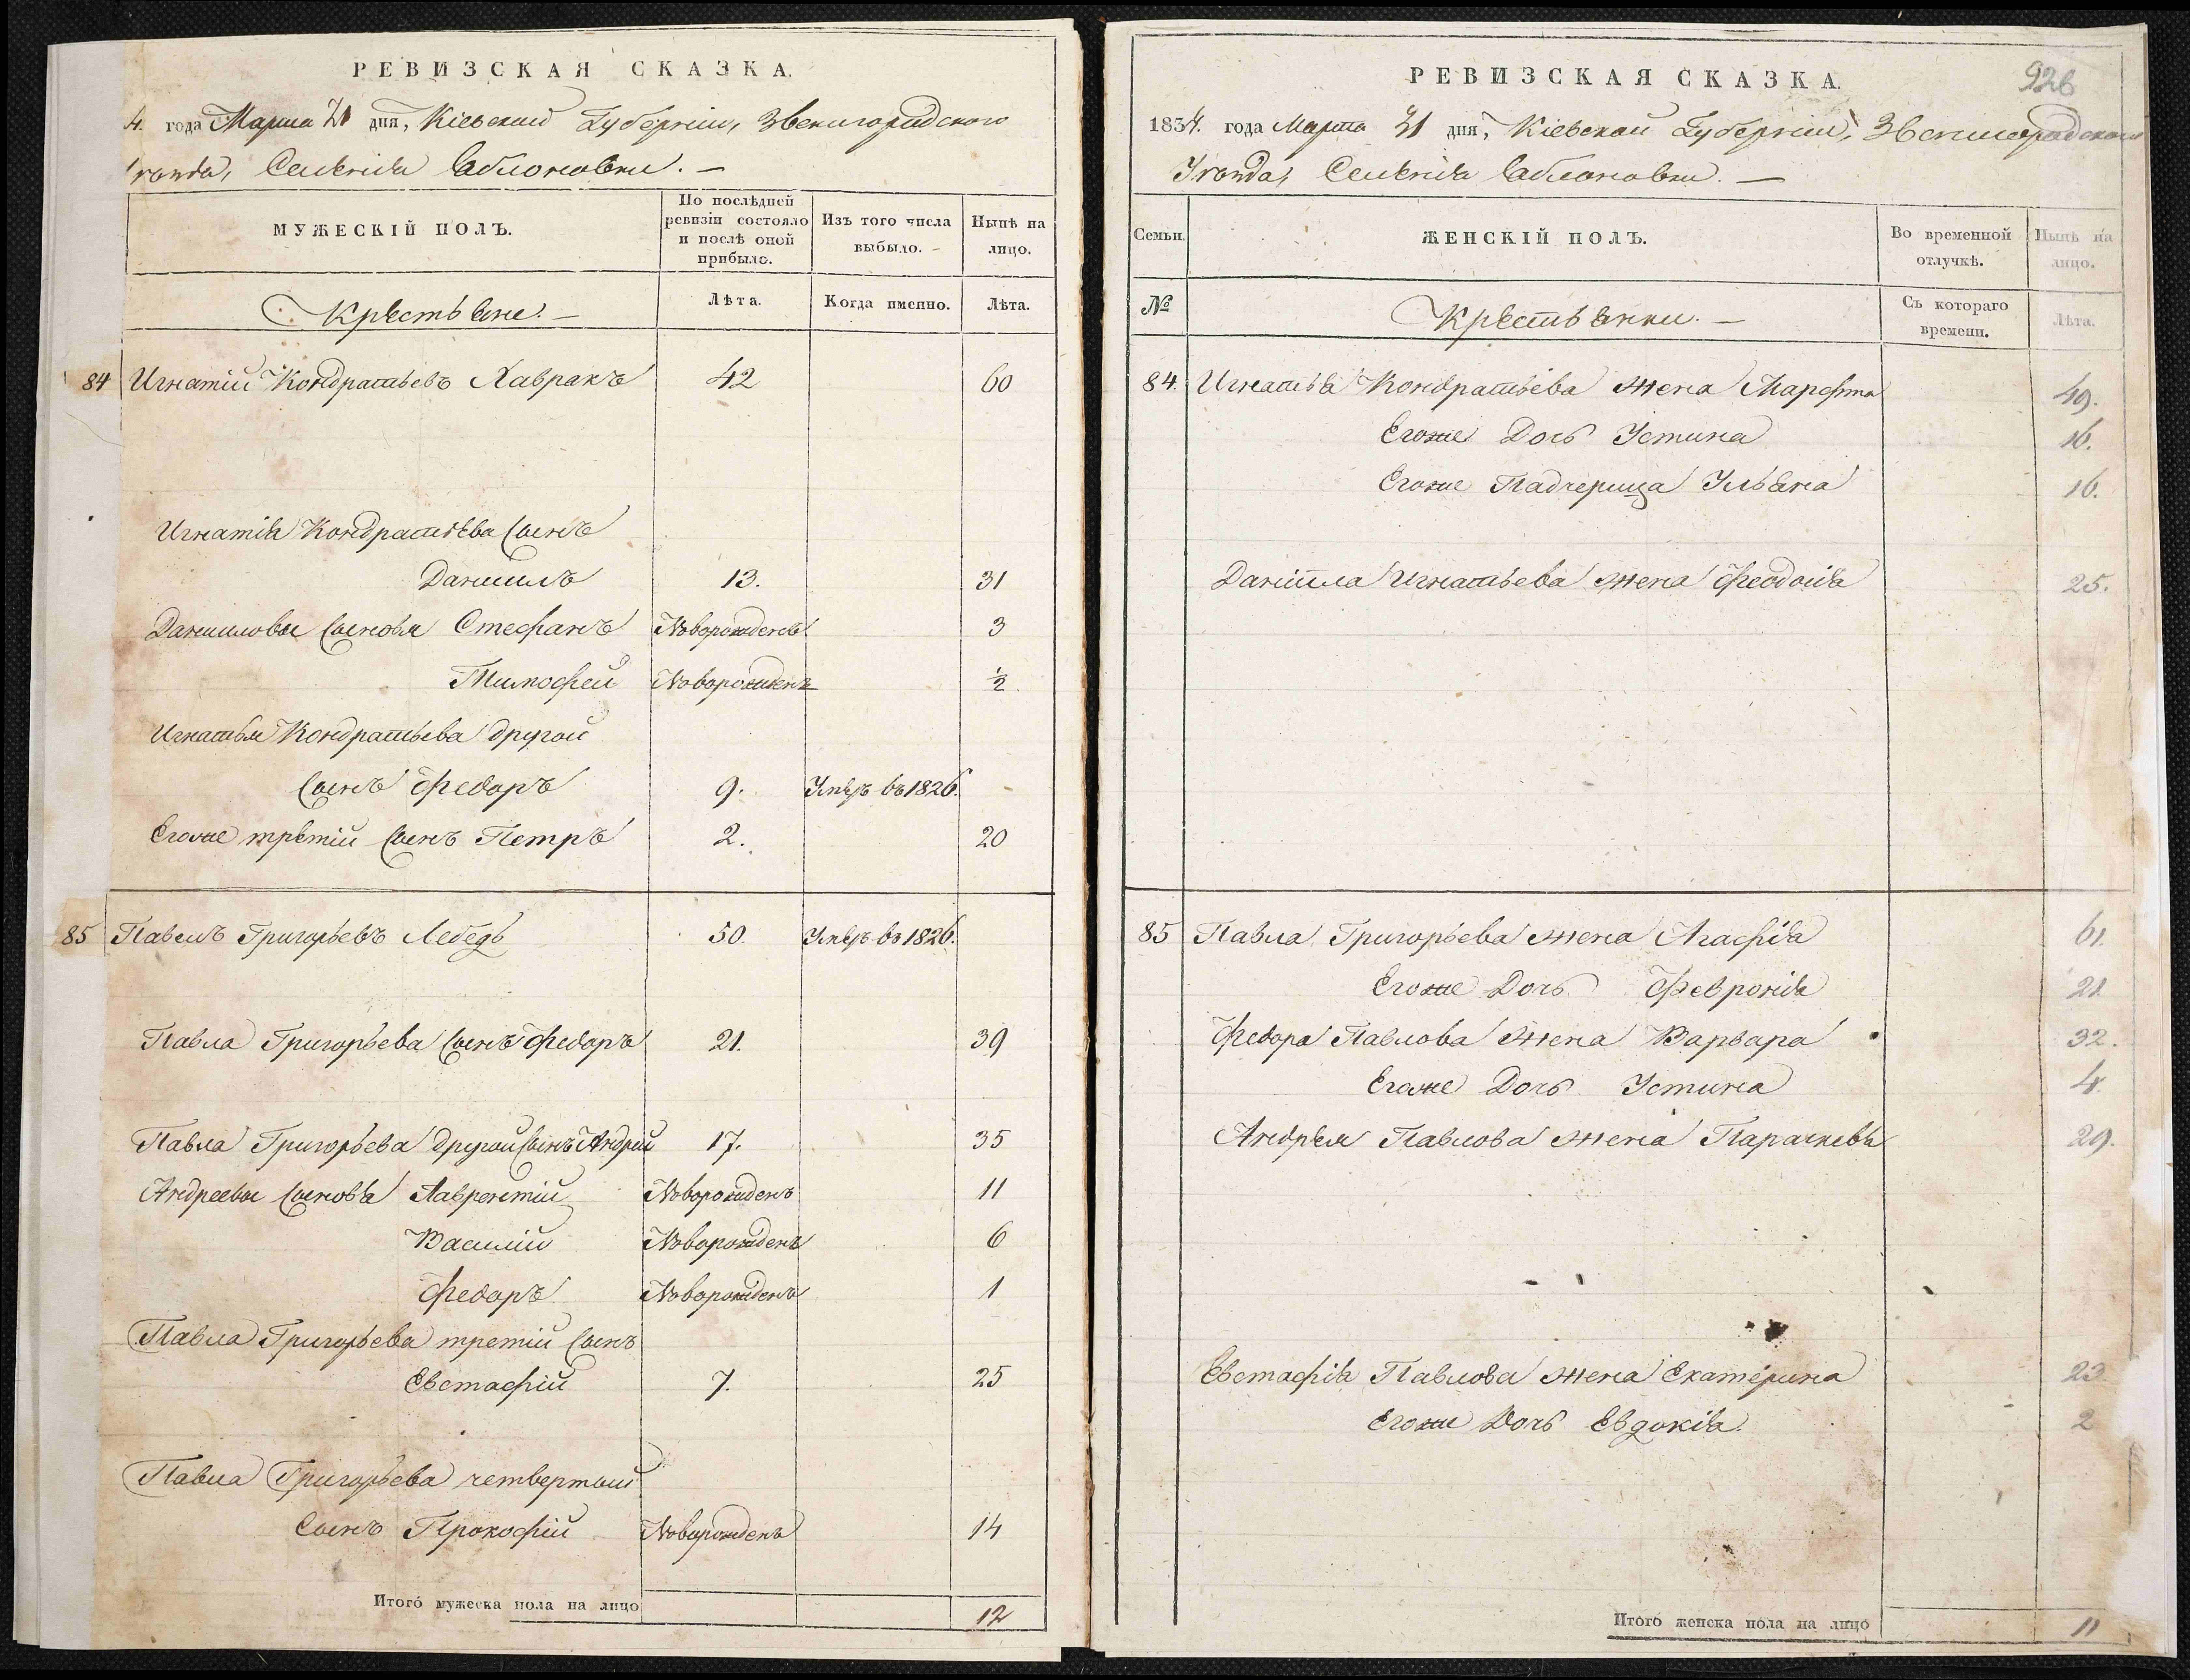 РЕВИЗСКАЯ СКАЗКА.
4. года Марта 21 дня, Кіевской Губерніи, Звенигородского
уезда, Селенія Яблоновки. —
МУЖЕСКІЙ ПОЛЪ.
По послѣдней ревизіи состояло и послѣ оной прибыло.
Изъ того числа выбыло.
Нынѣ на лицо.
Крестьяне. —
Лѣта.
Когда именно.
Лѣта.
84 Игнатій Кондратьевъ Лавракъ 42 60
Игнатія Кондратьева Сынъ
Даниилъ 13. 31
Данииловы Сыновья Стефанъ Новорожденъ 3
Тимофей Новорожденъ ½
Игнатья Кондратьева другой
Сынъ Федоръ 9. Умеръ въ 1826.
Егоже третій Сынъ Петръ 2. 20
85 Павелъ Григорьевъ Лебедь 50. Умеръ въ 1826.
Павла Григорьева Сынъ Федоръ 21. 39
Павла Григорьева другой Сынъ Андрей 17. 35
Андреевы Сыновья Лаврентій Новорожденъ 11
Василій Новорожденъ 6
Федоръ Новорожденъ 1
Павла Григорьева третій Сынъ
Евстафій 7. 25
Павла Григорьева четвертый
Сынъ Прокофій Новорожденъ 14
Итого мужеска пола на лицо 12
РЕВИЗСКАЯ СКАЗКА.
926
1834. года Марта 21 дня, Кіевской Губерніи, Звенигородского
Уезда, Селенія Яблоновки. —
Семьи.
ЖЕНСКІЙ ПОЛЪ.
Во временной отлучкѣ.
Нынѣ на лицо.
№
Крестьянки. —
Съ котораго времени.
Лѣта.
84 Игнатья Кондратьева жена Марфта 49.
Егоже Дочь Устина 16.
Егоже Падчерица Ульяна 16.
Даніила Игнатьева жена Феодосія 25.
85 Павла Григорьева жена Агафія 61.
Егоже Дочь Февронія 21.
Федора Павлова жена Варвара 32.
Егоже Дочь Устина 4.
Андрея Павлова жена Параскевія 29.
Евстафія Павлова жена Екатерина 23
Егоже Дочь Евдокія. 2
Итого женска пола на лицо 11